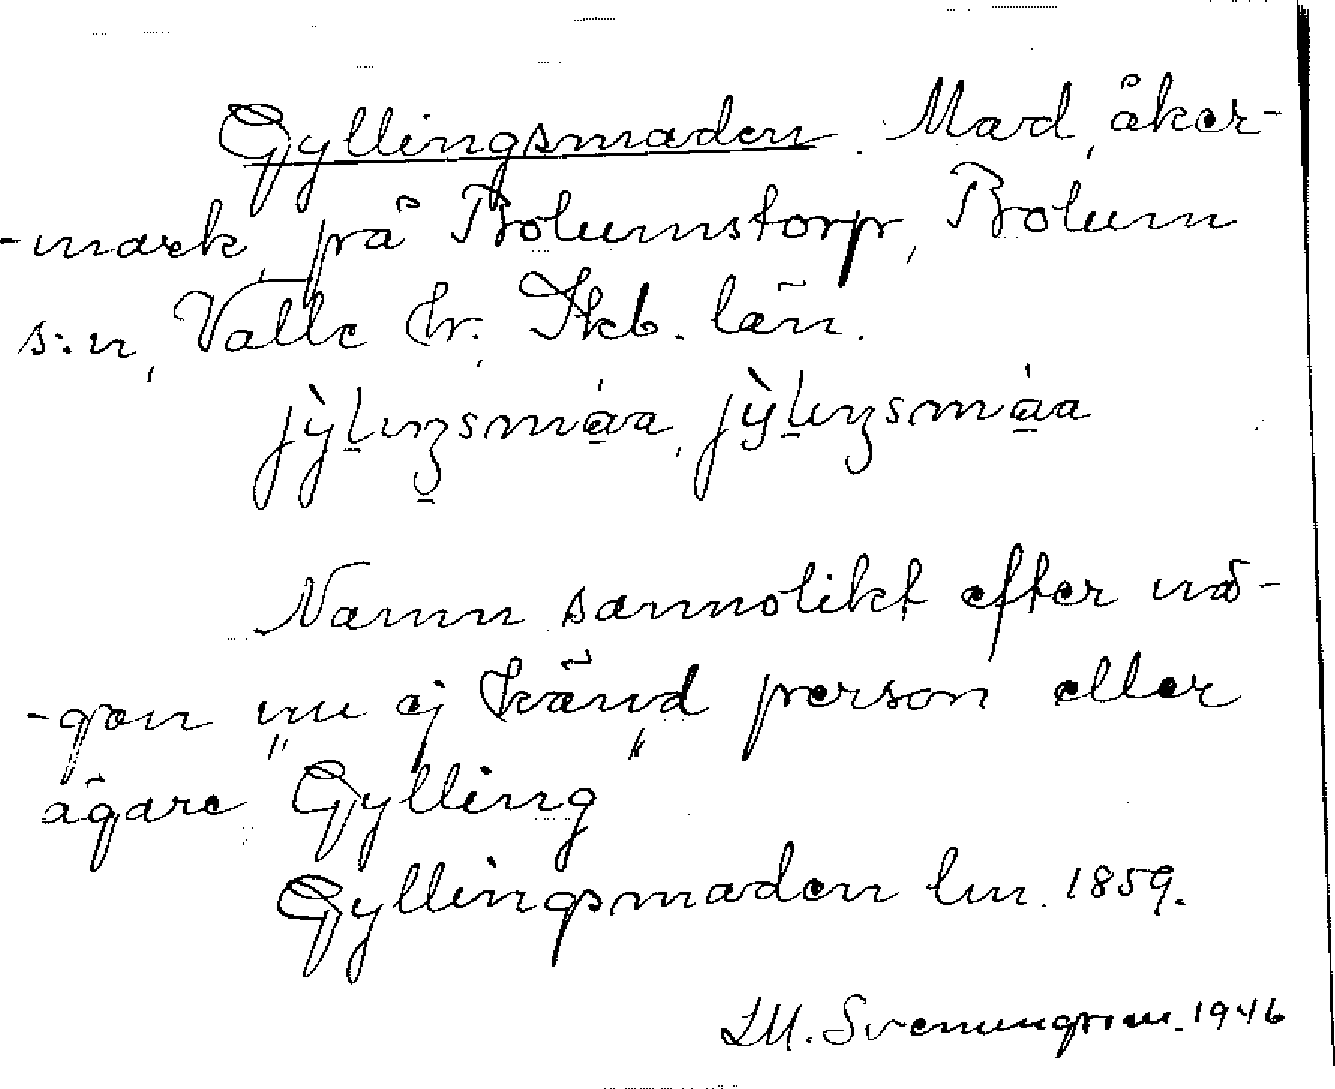 Gyllingsmaden. Mad, åker-
-mark, på Bolumstorp, Bolum
s:n, Valle hr, Skb. län.
Namn sannolikt efter nå-
-gon nu ej känd person eller
ägare "Gylling"
Gyllingsmaden lm. 1859.
LM. Svenungsson. 1946